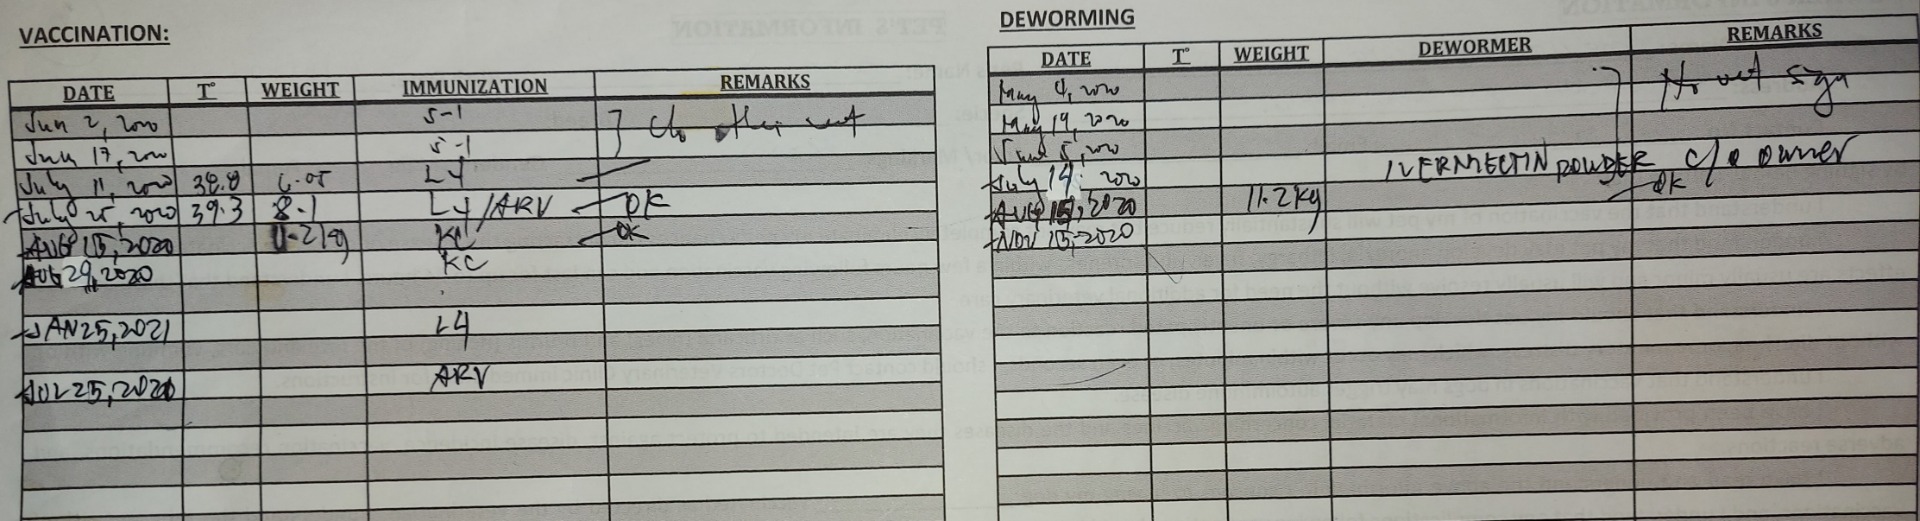 VACCINATION:
DATE T° WEIGHT IMMUNIZATION REMARKS
Jun 2, 2020 5-1
Jun 17, 2020 5-1
July 11, 2020 38.8 6.05 L4
July 25, 2020 39.3 8.1 L4/ARV OK
AUG 15, 2020 KC OK
AUG 29, 2020 KC
JAN 25, 2021 L4
JUL 25, 2021 ARV
DEWORMING
DATE T° WEIGHT DEWORMER REMARKS
May 4, 2020 No vet sign
May 19, 2020
June 5, 2020
July 14, 2020 IVERMECTIN POWDER c/o owner
AUG 15, 2020 11.2kg OK
NOV 15, 2020